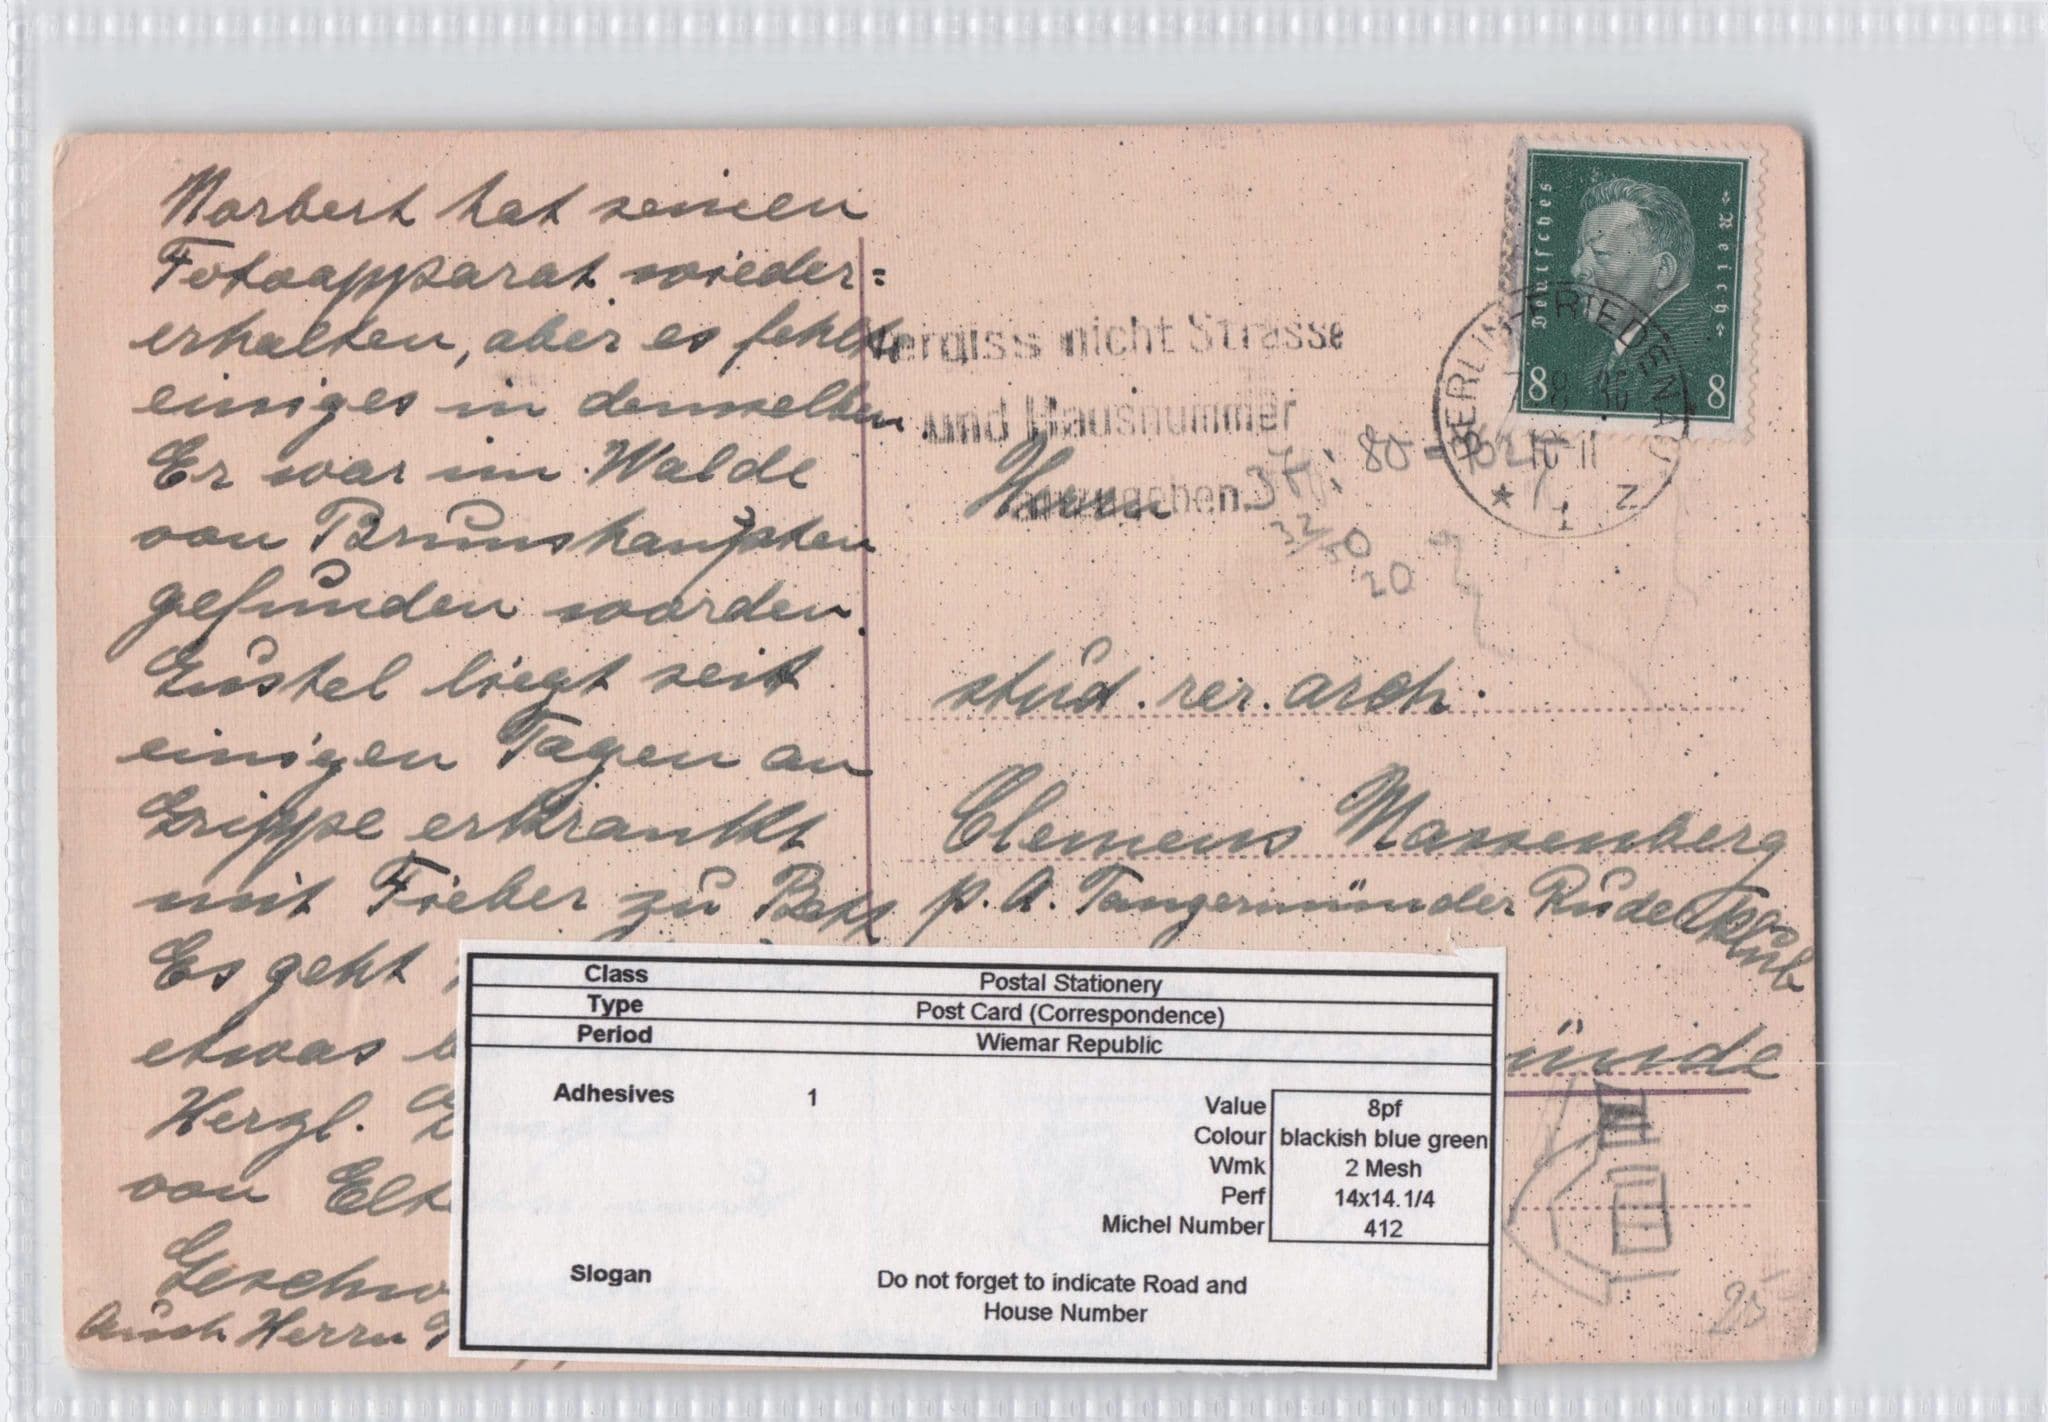 Norbert hat seinen
Fotoapparat wieder=
erhalten, aber es fehlt
einiges in demselben.
Er war im Walde
von Brunshaupten
gefunden worden.
Gustel liegt seit
einigen Tagen an
Grippe erkrankt
mit Fieber zu Bett
Es geht
etwas
Herzl.
von
Auch Herrn
Deutsches Reich
8 8
BERLIN-FRIEDENAU
* 1 Z
Vergiss nicht Strasse
und Hausnummer
anzugeben
Herrn
stud. rer. arch.
Clemens Massenberg
p. A. Tangermünder Ruderklub
25
Class Postal Stationery
Type Post Card (Correspondence)
Period Wiemar Republic
Adhesives 1
Value 8pf
Colour blackish blue green
Wmk 2 Mesh
Perf 14x14.1/4
Michel Number 412
Slogan Do not forget to indicate Road and
House Number